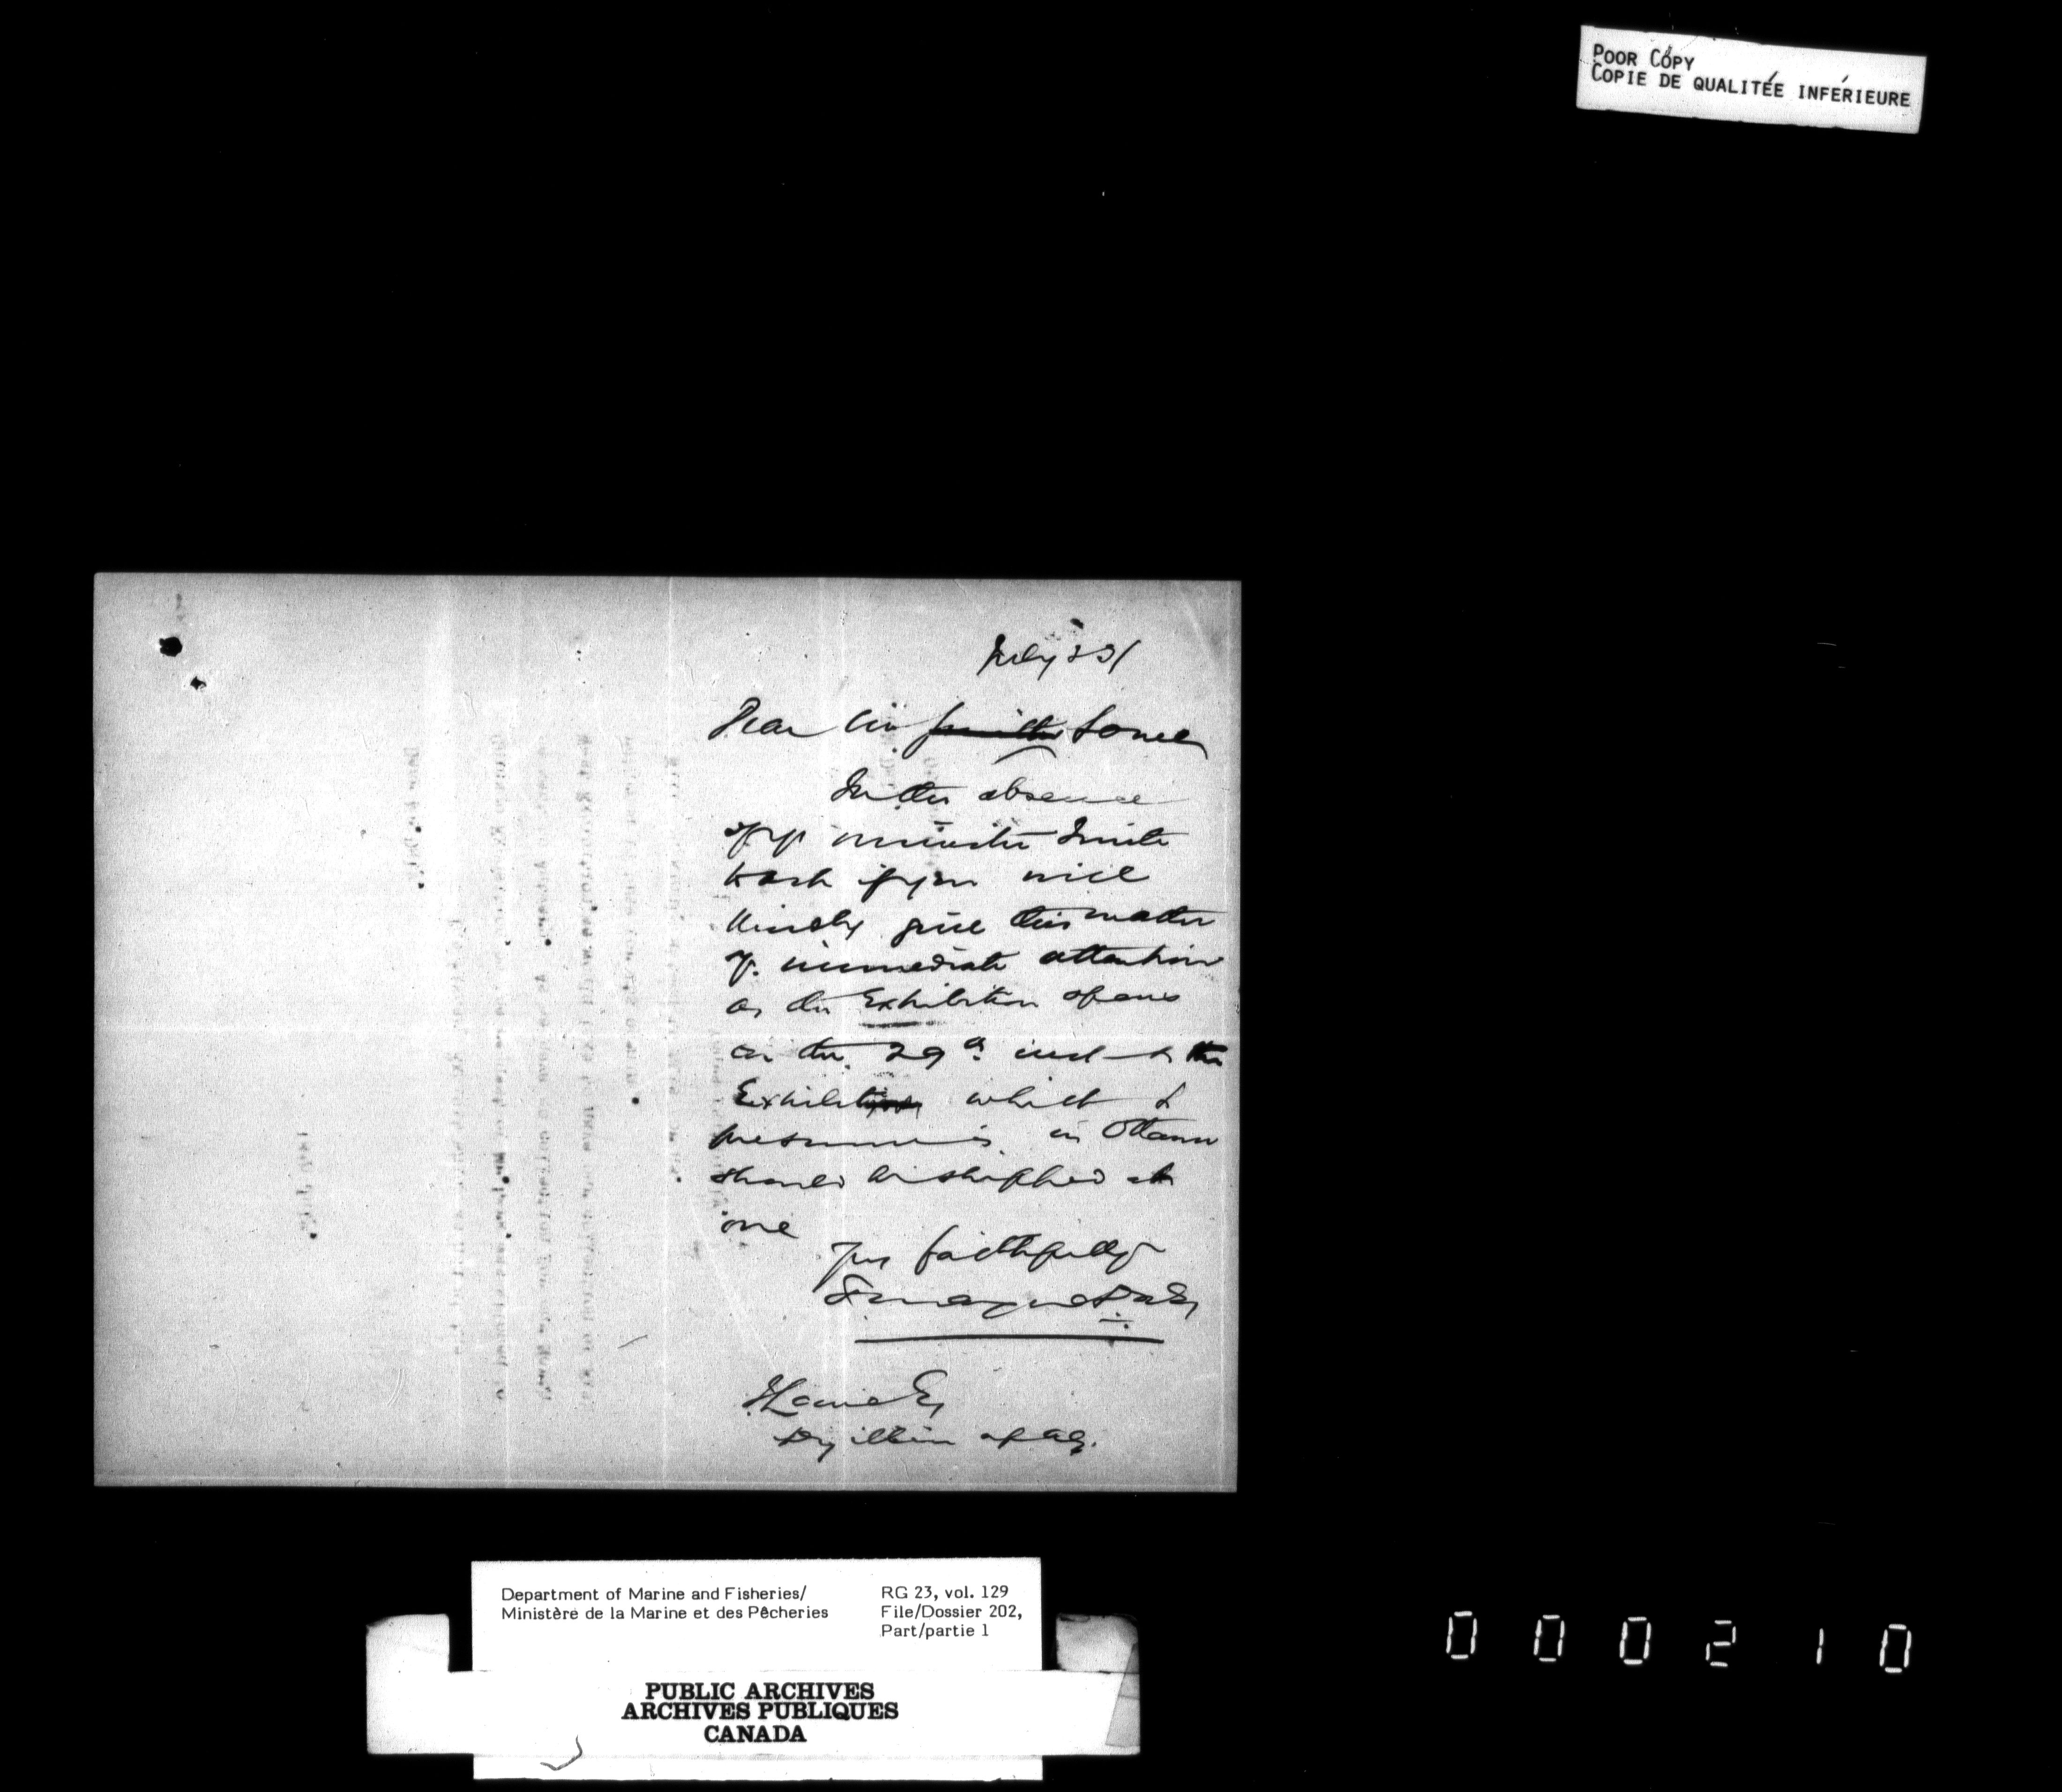 POOR COPY
COPIE DE QUALITÉE INFÉRIEURE
July 23/
Dear Sir Smith
In the absence
of yr minister I write
to ask if you will
kindly give this matter
yr. immediate attention
as the Exhibition opens
on the 29th inst the
Exhibit which I
presume is in Ottawa
should be shipped at
once
Yrs faithfully
Department of Marine and Fisheries/
Ministère de la Marine et des Pêcheries
RG 23, vol. 129
File/Dossier 202,
Part/partie 1
PUBLIC ARCHIVES
ARCHIVES PUBLIQUES
CANADA
000210